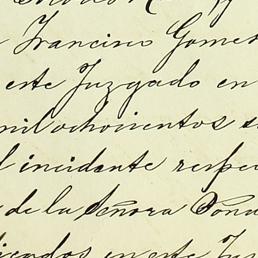 Francisco Gomes
este Juzgado en
mil ochocientos s
l incidente respe
de la Señora Dona
icados en este Ju